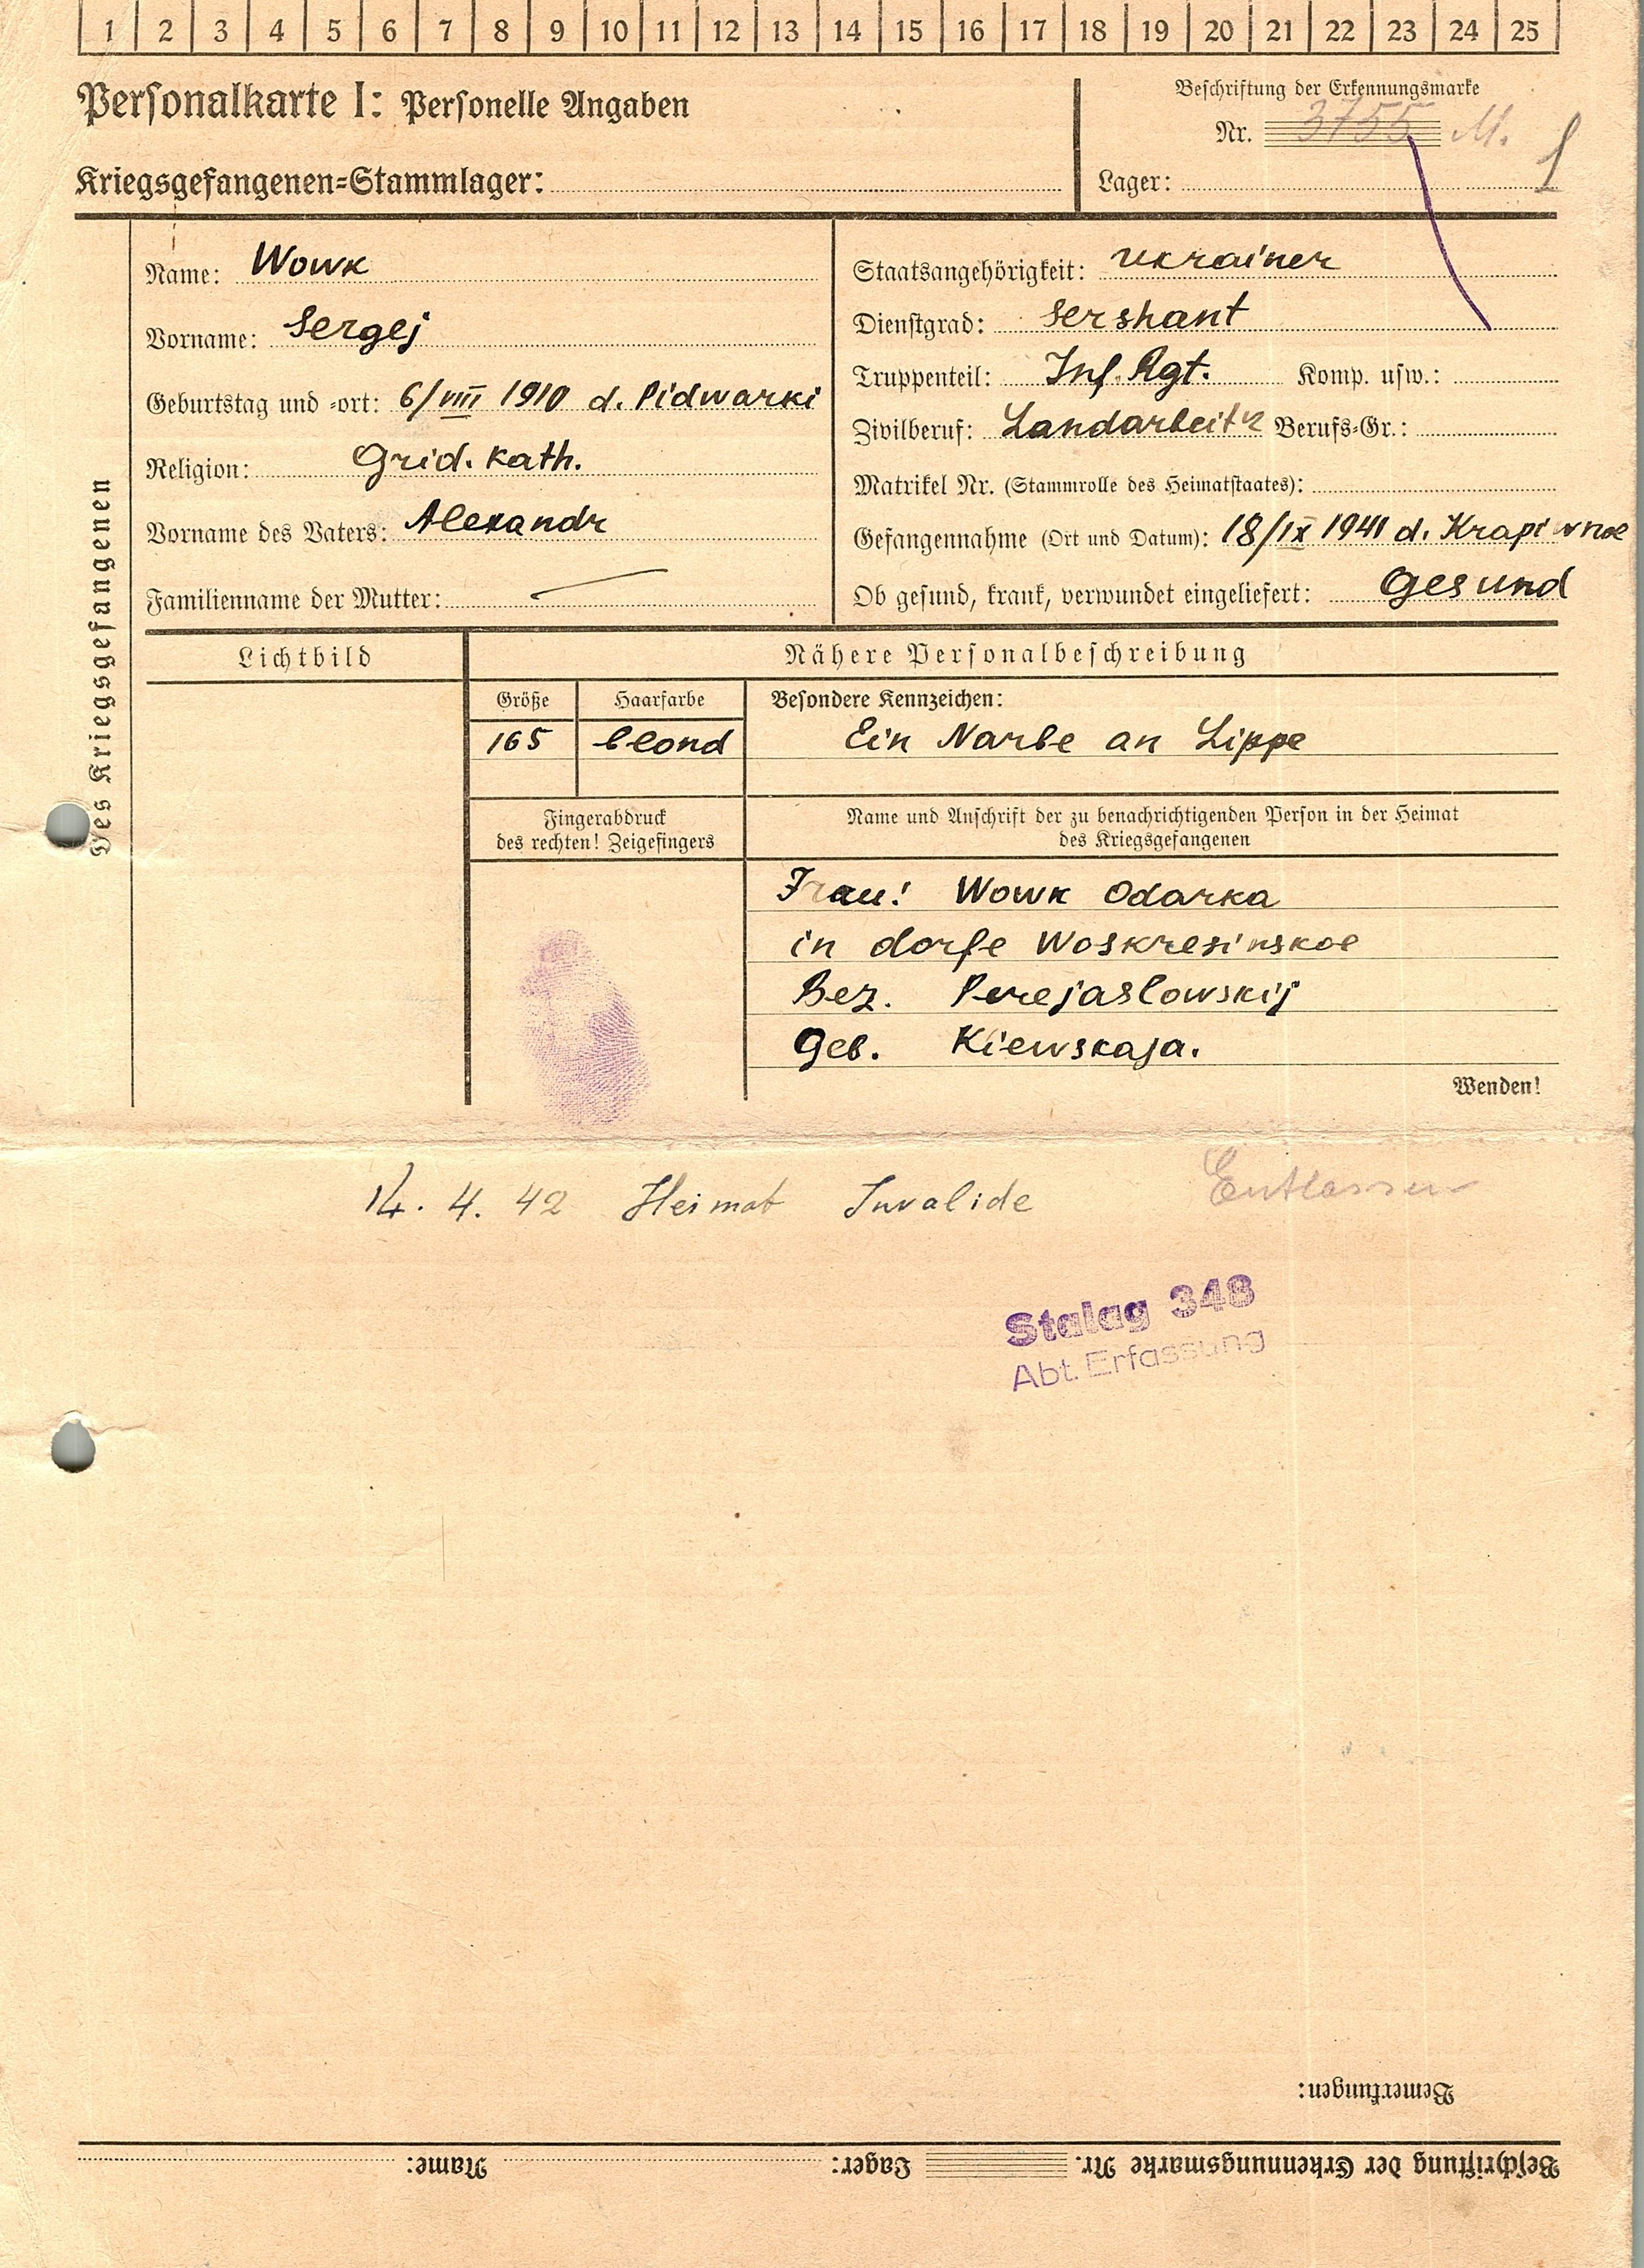 1 2 3 4 5 6 7 8 9 10 11 12 13 14 15 16 17 18 19 20 21 22 23 24 25
Personalkarte I: Personelle Angaben
Kriegsgefangenen-Stammlager:
Beschriftung der Erkennungsmarke
Nr. 3755 M.
Lager:
Des Kriegsgefangenen
Name: Wowk
Vorname: Sergej
Geburtstag und -ort: 6/VIII 1910 d. Pidwarki
Religion: Grid. kath.
Vorname des Vaters: Alexandr
Familienname der Mutter:
Staatsangehörigkeit: Ukrainer
Dienstgrad: Sershant
Truppenteil: Inf. Rgt. Komp. usw.:
Zivilberuf: Landarbeiter Berufs-Gr.:
Matrikel Nr. (Stammrolle des Heimatstaates):
Gefangennahme (Ort und Datum): 18/IX 1941 d. Krapiwnoe
Ob gesund, krank, verwundet eingeliefert: Gesund
Lichtbild
Nähere Personalbeschreibung
Größe
165
Haarfarbe
blond
Besondere Kennzeichen:
Ein Narbe an Lippe
Fingerabdruck
des rechten! Zeigefingers
Name und Anschrift der zu benachrichtigenden Person in der Heimat
des Kriegsgefangenen
Frau! Wowk Odarka
in dorfe Woskresinskoe
Bez. Perejaslowskij
Geb. Kiewskaja.
Wenden!
14. 4. 42 Heimat Invalide Entlassen
Stalag 348
Abt. Erfassung
Bemerkungen:
Beschriftung der Erkennungsmarke Nr. Lager: Name: